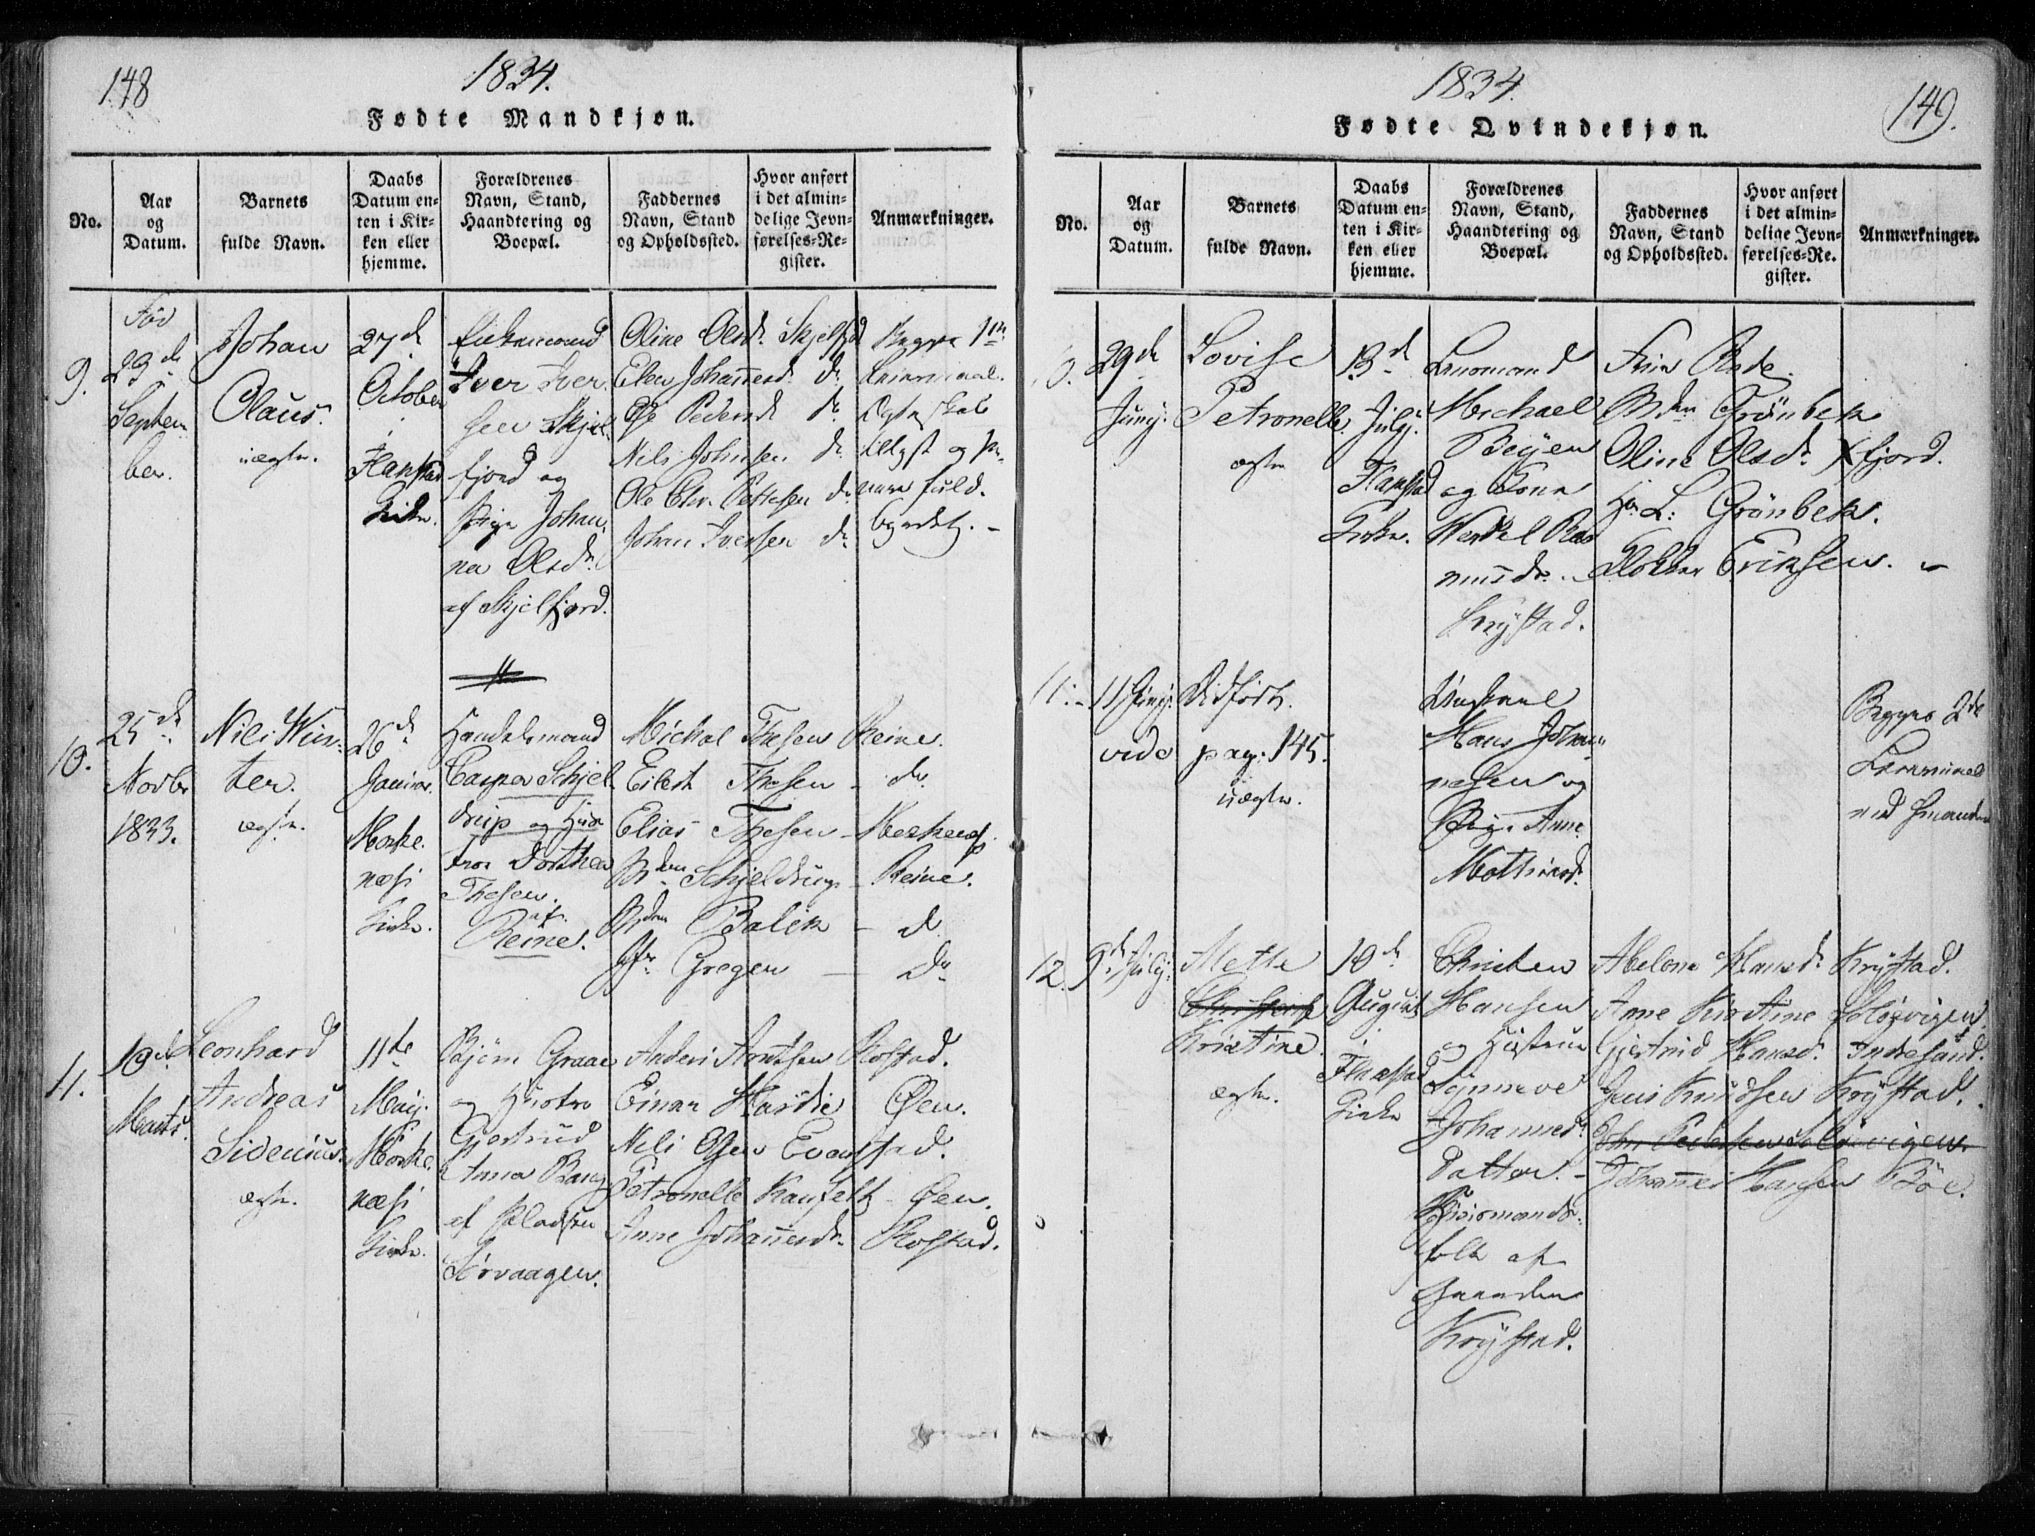 148
1834.
Fødte Mandkjøn.
No.
Aar
og
Datum.
Barnets
fulde Navn.
Daabs
Datum en-
ten i Kir-
ken eller
hjemme.
Forældrenes
Navn, Stand,
Haandtering og
Boepæl.
Faddernes
Navn, Stand
og Opholdssted.
Hvor anført
i det almin-
delige Jevn-
førelses-Re-
gister.
Anmærkninger.
9.
Fød
29de
Septem
ber.
Johan
Claus.
uægte.
27de
October
i
Flakstad
Kirke.
Enkemand
Iver Iver
sen Skjel
fjord og
Pige Johan
na Olsd.
af Skjelfjord.
Oline Olsd. Skjelfjd
Elen Johannesd. do
Else Pedersd. do
Nils Johnsen do
Ole Chr. Pettersen do
Johan Iversen do
Begges 1ste
Leiermaal.
Ægteskab
tillyst og
fuld
byrdet. -
10.
25de
Novbr
1833.
Nils Win
ter.
ægte.
26de
Januar.
Moske
næsi
Kirke.
Handelsmand
Casper Schjel
drup og Hustr
Dorthea
Thesen.
af
Reine.
Michal Thesen Reine.
Eilert Thesen - do
Elias Thesen -
Schjeldrup - Reine.
Balik - do
Jfr Gregen - do
11.
19de
Marts.
Leonhard
Andreas
Sidenius.
ægte.
11te
Maij.
Moske.
næsi
Kirke.
Bjørn Graae
og Hustro
Gjertrud
Anna Bang
af Pladsen
Sørvaagen.
Anders Arntsen Rostad.
Einar Hardie Øen.
Nils Olsen Evenstad.
Petronelle Kanfelt - Øen.
Anne Johannesdr. Rostad.
1834.
149.
Fødte Qvindekjøn.
No.
Aar
og
Datum.
Barnets
fulde Navn.
Daabs
Datum en-
ten i Kir-
ken eller
hjemme.
Forældrenes
Navn, Stand,
Haandtering og
Boepæl.
Faddernes
Navn, Stand
og Opholdssted.
Hvor anført
i det almin-
delige Jevn-
førelses-Re-
gister.
Anmærkninger.
10.
29de
Junij.
Lovise
Petronelle.
ægte
13de
Julij.
Flakstad
Kirke.
Lensmand
Michael
Beyer
og Kone
Wenkel Ras
musdr.
Krystad.
Frue Rode.
Grönbek
Oline Olsdr. Xfjord.
Hr L: Grönbek.
Klokker Eriksen. -
11.
11 Junij.
vide
Didført.
pag: 145.
uægte.
Ungkarl
Hans Johan
nesen og
Pige Anne
Mathiasd.
Begges 2det
Leiermaal
12.
9de Julij.
Mette
Kristine.
ægte.
10de
August
i
Flakstad
Kirke
Christen
Hansen
og Hustrue
Synneve
Johannesd.
Datter. -
Huusmands
folk af
Gaarden
Krystad.
Abelone Hansd. Krystad.
Anne Kirstine Solbvigen.
Gjertrud Hansd. Indresand.
Jens Knudsen Krystad.
Pedersen Solbvigen
Johannes Hansen Böe.